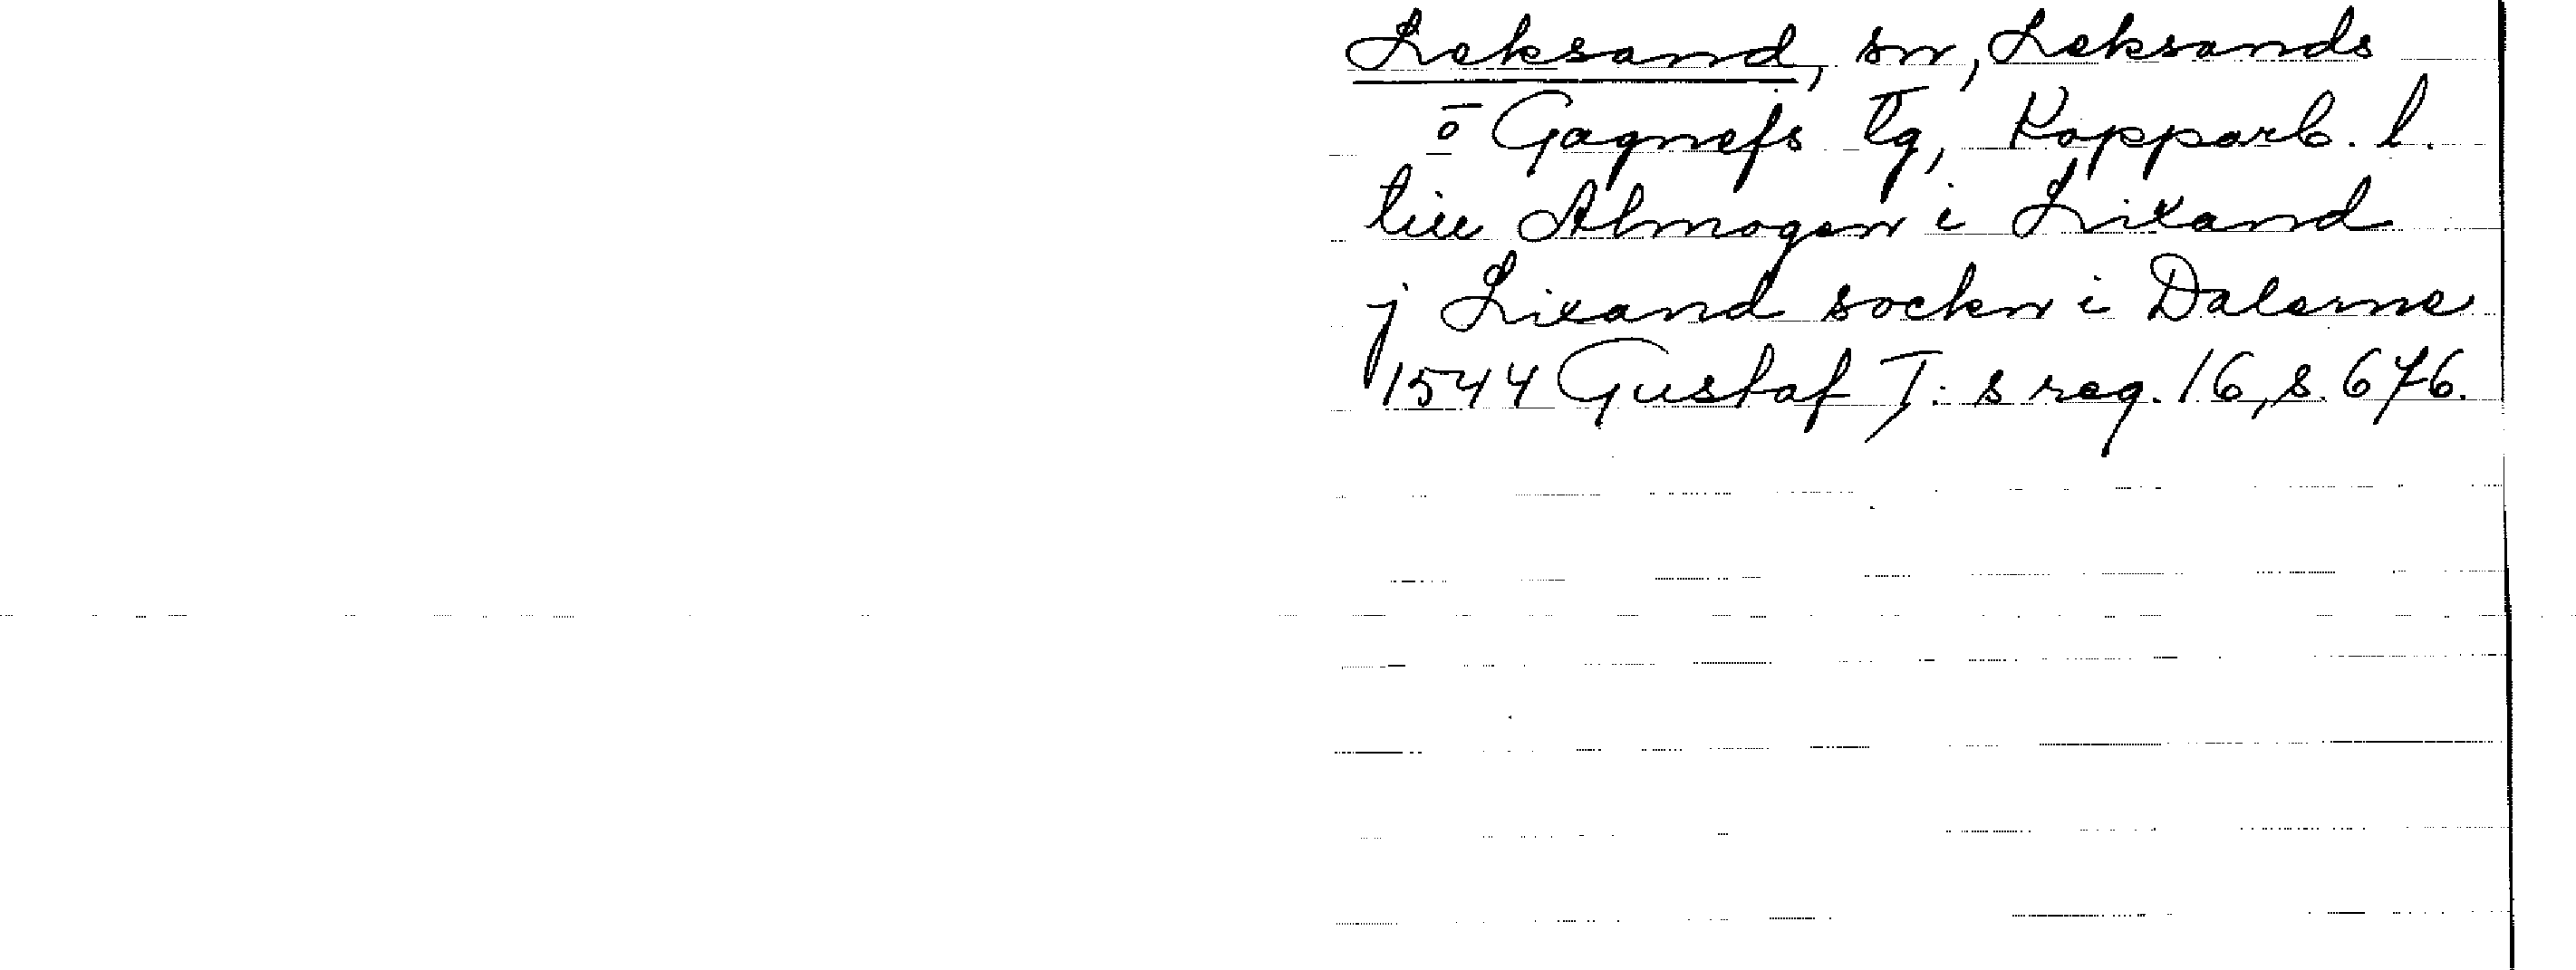 Leksand, sn, Leksands
o Gagnefs tg, Kopparb. l.
till Almogen i Lixand
j Lixand sockn i Dalerne
1544 Gustaf I:s reg. 16, s. 676.